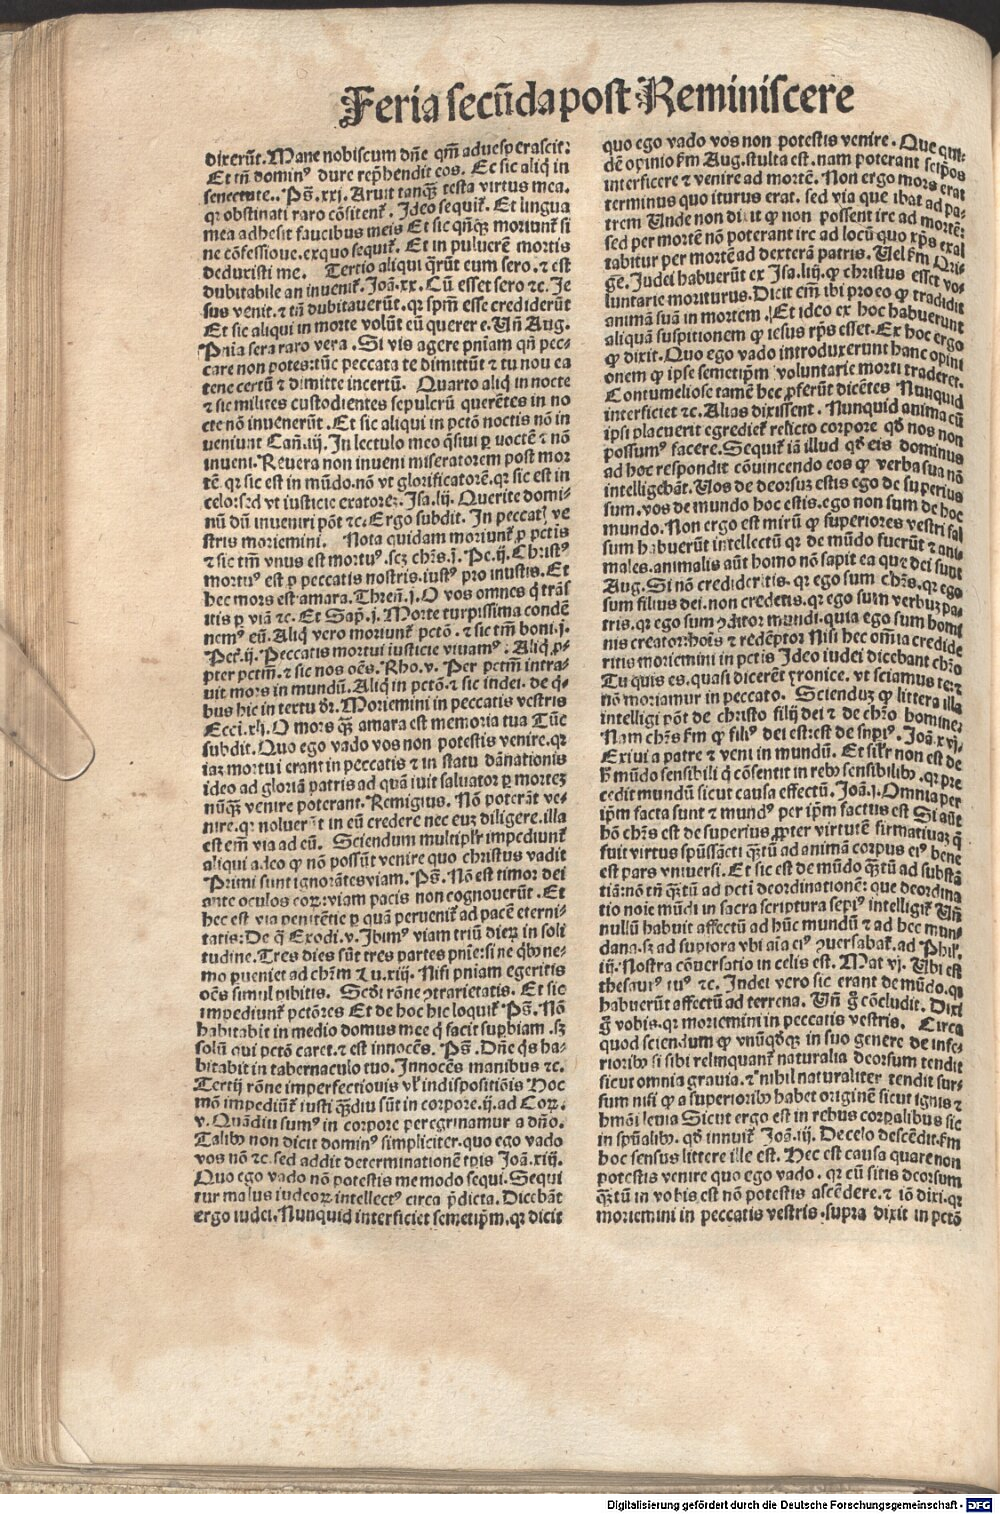 Feria secūda post Reminiscere
dixerūt. Mane nobiscum dñe qm̄ aduesperascit:
Et tñ dominꝰ dure rep̄hendit eos. Et sic aliq̇ in
senectute.. Ps̄. xxj. Aruit tanqᷓȝ testa virtus mea.
qꝛ obstinati raro cōsitenṫ. Ideo sequiṫ. Et lingua
mea adhesit faucibus meis Et sic qn̄qȝ moriunṫ si
ne cōfessione. ex quo sequiṫ. Et in puluerē mortis
deduxisti me. Tertio aliqui q̄rūt eum sero. ⁊ est
dubitabile an inueniṫ. Joā. xx. Cū esset sero ⁊c. Je
sus venit. ⁊ tñ dubitauerūt. qꝛ spm̄ esse crediderūt
Et sic aliqui in morte volūt eū querere. Uñ Aug.
Pn̄ia sera raro vera. Si vis agere pn̄iam qn̄ pec-
care non potes: tūc peccata te dimittūt ⁊ tu nou ea
tene certū ⁊ dimitte incertū. Quarto aliq̇ in nocte
⁊ sic milites custodientes sepulcrū querētes in no
cte nō inuenerūt. Et sic aliqui in pctō noctis nō in
veniunt Cañ. iij. In lectulo meo q̄siui ꝑ noctē ⁊ nō
inueni. Reuera non inueni miseratorem post mor
tē. qꝛ sic est in mūdo. nō vt glorificatorē. qꝛ sic est in
celo: sed vt iusticie exatoreȝ. Isa. lij. Querite domi-
nū dū inueniri pōt ⁊c. Ergo subdit. In peccatꝭ ve
stris moriemini. Nota quidam moriunṫ ꝓ pctis
⁊ sic tm̄ vnus est mortuꝰ. scȝ chr̄s. j. Pe. ij. Christꝰ
mortuꝰ est ꝓ peccatis nostris. iustꝰ pro iniustis. Et
hec mors est amara. Threñ. j. O vos omnes q̇ trās
itis ꝑ viā ⁊c. Et Sap̄. j. Morte turpissima condē
nemꝰ eū. Aliq̇ vero moriunṫ pctō. ⁊ sic tm̄ boni. j.
Pet̄. ij. Peccatis mortui iusticie viuamꝰ: Aliq̇ ꝓ-
pter pctm̄. ⁊ sic nos oēs. Rho. v. Per pctm̄ intra-
uit mors in mundū. Aliq̇ in pctō. ⁊ sic iudei. de q̇-
bus hic in textu dr̄. Moriemini in peccatis vestris
Ecci. xlj. O mors qᷓȝ amara est memoria tua Tūc
subdit. Quo ego vado vos non potestis venire. qꝛ
iaȝ mortui erant in peccatis ⁊ in statu dānationis
ideo ad gloriā patris ad quā iuit saluator ꝑ morteȝ
nūqᷓȝ venire poterant. Remigius. Nō poterāt ve-
nire. qꝛ noluerūt in eū credere nec euȝ diligere. illa
est em̄ via ad eū. Sciendum multiplr̄ impediunṫ
aliqui adeo ꝙ nō possūt venire quo christus vadit
Primi sunt ignorātes viam. Ps̄. Nō est timor dei
ante oculos eoꝝ: viam pacis non cognouerūt. Et
hec est via penitētie ꝑ quā perueniṫ ad pacē eterni-
tatis: De q̄ Exodi. v. Ibimꝰ viam triū dierꝝ in soli
tudine. Tres dies sūt tres partes pn̄ie: si ne q̇bꝰ ne-
mo ꝑueniet ad chr̄m Lu. xiij. Nisi pn̄iam egeritis
oēs simul ꝑibitis. Scd̄i rōne ꝯtrarietatis. Et sic
impediunṫ pctōres Et de hoc hic loquiṫ Ps̄. Nō
habitabit in medio domus mee q̇ facit sup̄biam. sȝ
solū qui pctō caret. ⁊ est innocēs. Ps̄. Dñe q̇s ha-
bitabit in tabernaculo tuo. Innocēs manibus ⁊c.
Tertij rōne imperfectionis vel̄ indispositiōis Hoc
mō impediunṫ iusti qᷓȝdiu sūt in corpore. ij. ad Coꝝ.
v. Quādiu sumꝰ in corpore peregrinamur a dño.
Talibꝰ non dicit dominꝰ simpliciter. quo ego vado
vos nō ⁊c. sed addit determinationē tꝑis Joā. xiij.
Quo ego vado nō potestis me modo sequi. Sequi
tur malus iudeoꝝ intellectꝰ circa p̄dicta. Dicebāt
ergo iudei. Nunquid interficiet semetip̄m. qꝛ dicit
quo ego vado vos non potestis venire. Que qui-
dē opinio fm̄ Aug. stulta est. nam poterant seip̄os
interficere ⁊ venire ad mortē. Non ergo mors erat
terminus quo iturus erat. sed via que ibat ad pa-
trem Unde non dixit ꝙ non possent ire ad mortē:
sed per mortē nō poterant ire ad locū quo xp̄s exal
tabitur per mortē ad dexterā patris. Uel fm̄ Ori-
ge. Judei habuerūt ex Isa. liij. ꝙ christus esset vo-
luntarie moriturus. Dicit em̄ ibi pro eo ꝙ tradidit
animā suā in mortem. Et ideo ex hoc habuerunt
aliquā suspitionem ꝙ iesus xp̄s esset. Ex hoc ergo
ꝙ dixit. Quo ego vado introduxerunt hanc opini
onem ꝙ ipse semetip̄m voluntarie morti traderet.
Contumeliose tamē hec ꝓferūt dicētes Nunquid
interficiet ⁊c. Alias dixissent. Nunquid anima cū
ipsi placuerit egredieṫ relicto corpore qḋ nos non
possumꝰ facere. Sequiṫ iā illud qḋ eis dominus
ad hoc respondit cōuincendo eos ꝙ verba sua nō
intelligebāt. Uos de deorsuȝ estis ego de superius
sum. vos de mundo hoc estis. ego non sum de hoc
mundo. Non ergo est mirū ꝙ superiores vestri fal
sum habuerūt intellectū qꝛ de mūdo fuerūt ⁊ ani-
males. animalis aūt homo nō sapit ea que dei sunt
Aug. Si nō credideritis. qꝛ ego sum chr̄s. qꝛ ego
sum filius dei. non credens. qꝛ ego sum verbuȝ pa-
tris. qꝛ ego sum ꝯditor mundi. quia ego sum homi
nis creator. hoīs ⁊ redēptor Nisi hec om̄ia credide
ritis moriemini in pctis Ideo iudei dicebant chr̄o
Tu quis es. quasi dicerēt yronice. vt sciamus te. ⁊
nō moriamur in peccato. Sciendūȝ ꝙ littera illa
intelligi pōt de christo filij dei ⁊ de chr̄o homine.
Nam chr̄s fm̄ ꝙ filiꝰ dei est: est de supiꝰ. Joā. xvj.
Exiui a patre ⁊ veni in mundū. Et silr̄ non est de
h̄ mūdo sensibili q̇ cōsentit in rebꝰ sensibilibꝰ. qꝛ pre
cedit mundū sicut causa effectū. Joā. j. Omnia per
ip̄m facta sunt ⁊ mundꝰ per ip̄m factus est Si aūt
hō chr̄s est de superius ꝓpter virtutē firmatiuaȝ q̄
fuit virtus spūssācti qᷓȝtū ad animā corpus eiꝰ bene
est pars vniuersi. Et sic est de mūdo qᷓȝtū ad substā
tiā: nō tñ qᷓȝtū ad pcti deordinationē: que deordina
tio noīe mūdi in sacra scriptura sepiꝰ intelligiṫ Uñ
nullū habuit affectū ad hūc mundū ⁊ ad hec mun-
dana. sȝ ad supiora vbi aīa eiꝰ ꝯuersabaṫ. ad Phil̄.
iij. Nostra cōuersatio in celis est. Mat vj. Ubi est
thesaurꝰ tuꝰ ⁊c. Iudei vero sic erant de mūdo. qꝛ
habuerūt affectū ad terrena. Uñ g̊ cōcludit. Dixi
g̊ vobis. qꝛ moriemini in peccatis vestris. Circa
quod sciendum ꝙ vnūqḋqȝ in suo genere de infe-
rioribꝰ si sibi relinquanṫ naturalia deorsum tendit
sicut omnia grauia. ⁊ nihil naturaliter tendit sur-
sum nisi ꝙ a superioribꝰ habet originē sicut ignis ⁊
hmōi leuia Sicut ergo est in rebus corꝑalibus sic
in spūalibꝰ. qḋ innuiṫ Joā. iij. De celo descēdit. fm̄
hoc sensus littere ille est. Hec est causa quare non
potestis venire quo ego vado. qꝛ cū sitis deorsum
qᷓȝtū in vobis est nō potestis ascēdere. ⁊ iō dixi. qꝛ
moriemini in peccatis vestris. supra dixit in pctō
Digitalisierung gefördert durch die Deutsche Forschungsgemeinschaft - DFG